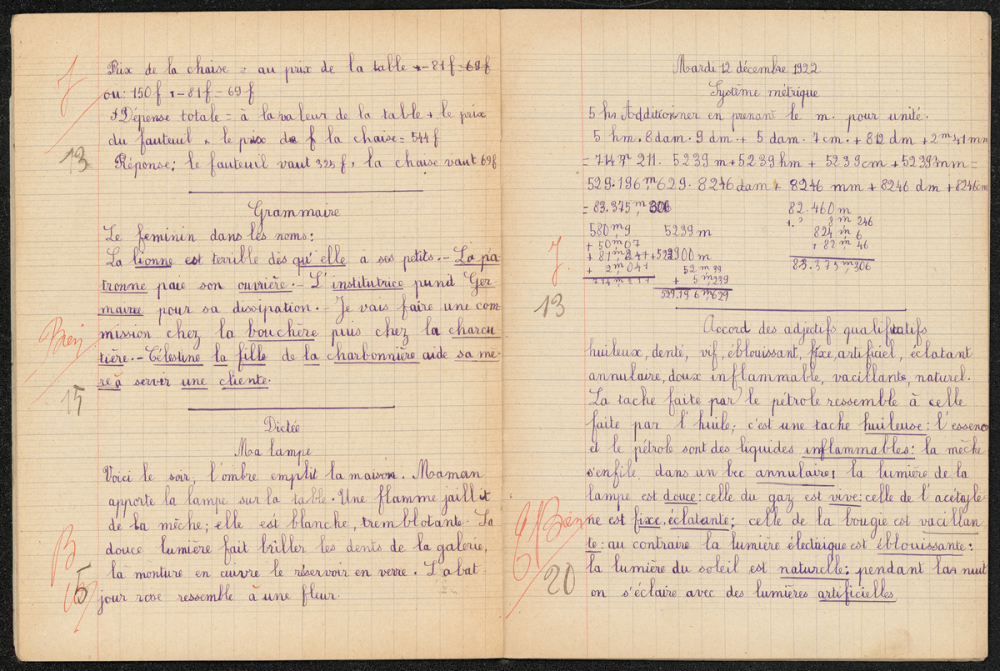 Prix de la chaise = au prix de la table - 81 f - 69 f
ou: 150 f - 81 f = 69 f
Dépense totale = à la valeur de la table + le prix
du fauteuil + le prix de la chaise = 544 f
13
Réponse: le fauteuil vaut 325 f, la chaise vaut 69 f
Grammaire
Le feminin dans les noms:
La lionne est terrible dès qu'elle a ses petits. - La pa-
tronne paie son ouvrière. - L'institutrice punit Ger
maine pour sa dissipation. - Je vais faire une com
mission chez la bouchère puis chez la charcu
Bien
tière. - Célestine la fille de la charbonnière aide sa mè-
re à servir une cliente.
15
Dictée
Ma lampe
Voici le soir, l'ombre emplit la maison. Maman
apporte la lampe sur la table. Une flamme jaillit
de la mèche; elle est blanche, tremblotante. Sa
B
douce lumière fait briller les dents de la galerie,
la monture en cuivre le réservoir en verre. L'abat
jour rose ressemble à une fleur.
Mardi 12 décembre 1922
Système métrique
5 hs Additionner en prenant le m. pour unité.
5 hm. 8 dam. 9 dm + 5 dam. 7 cm. + 812 dm + 2 m 41 mm
= 714 m 211. 5239 m + 5239 hm + 5239 cm + 5239 mm =
529.196 m 629. 8246 dam + 8246 mm + 8246 dm + 8246 cm
= 83.375 m 306
82.460 m
8 m 246
580 m 9
5239 m
824 m 6
+ 50 m 07
+ 82 m 46
83.375 m 306
+ 2 m 041
52 m 39
+ 5 m 239
529.196 m 629
13
Accord des adjectifs qualificatifs
huileux, denté, vif, éblouissant, fixe, artificiel, éclatant
annulaire, doux inflammable, vacillante, naturel.
La tache faite par le pétrole ressemble à celle
faite par l'huile; c'est une tache huileuse: l'essence
et le pétrole sont des liquides inflammables: la mèche
s'enfile dans un bec annulaire; la lumière de la
lampe est douce: celle du gaz est vive: celle de l'acétylè
Bien
ne est fixe, éclatante; celle de la bougie est vacillan
te: au contraire la lumière électrique est éblouissante:
la lumière du soleil est naturelle; pendant las nuit
20
on s'éclaire avec des lumières artificielles